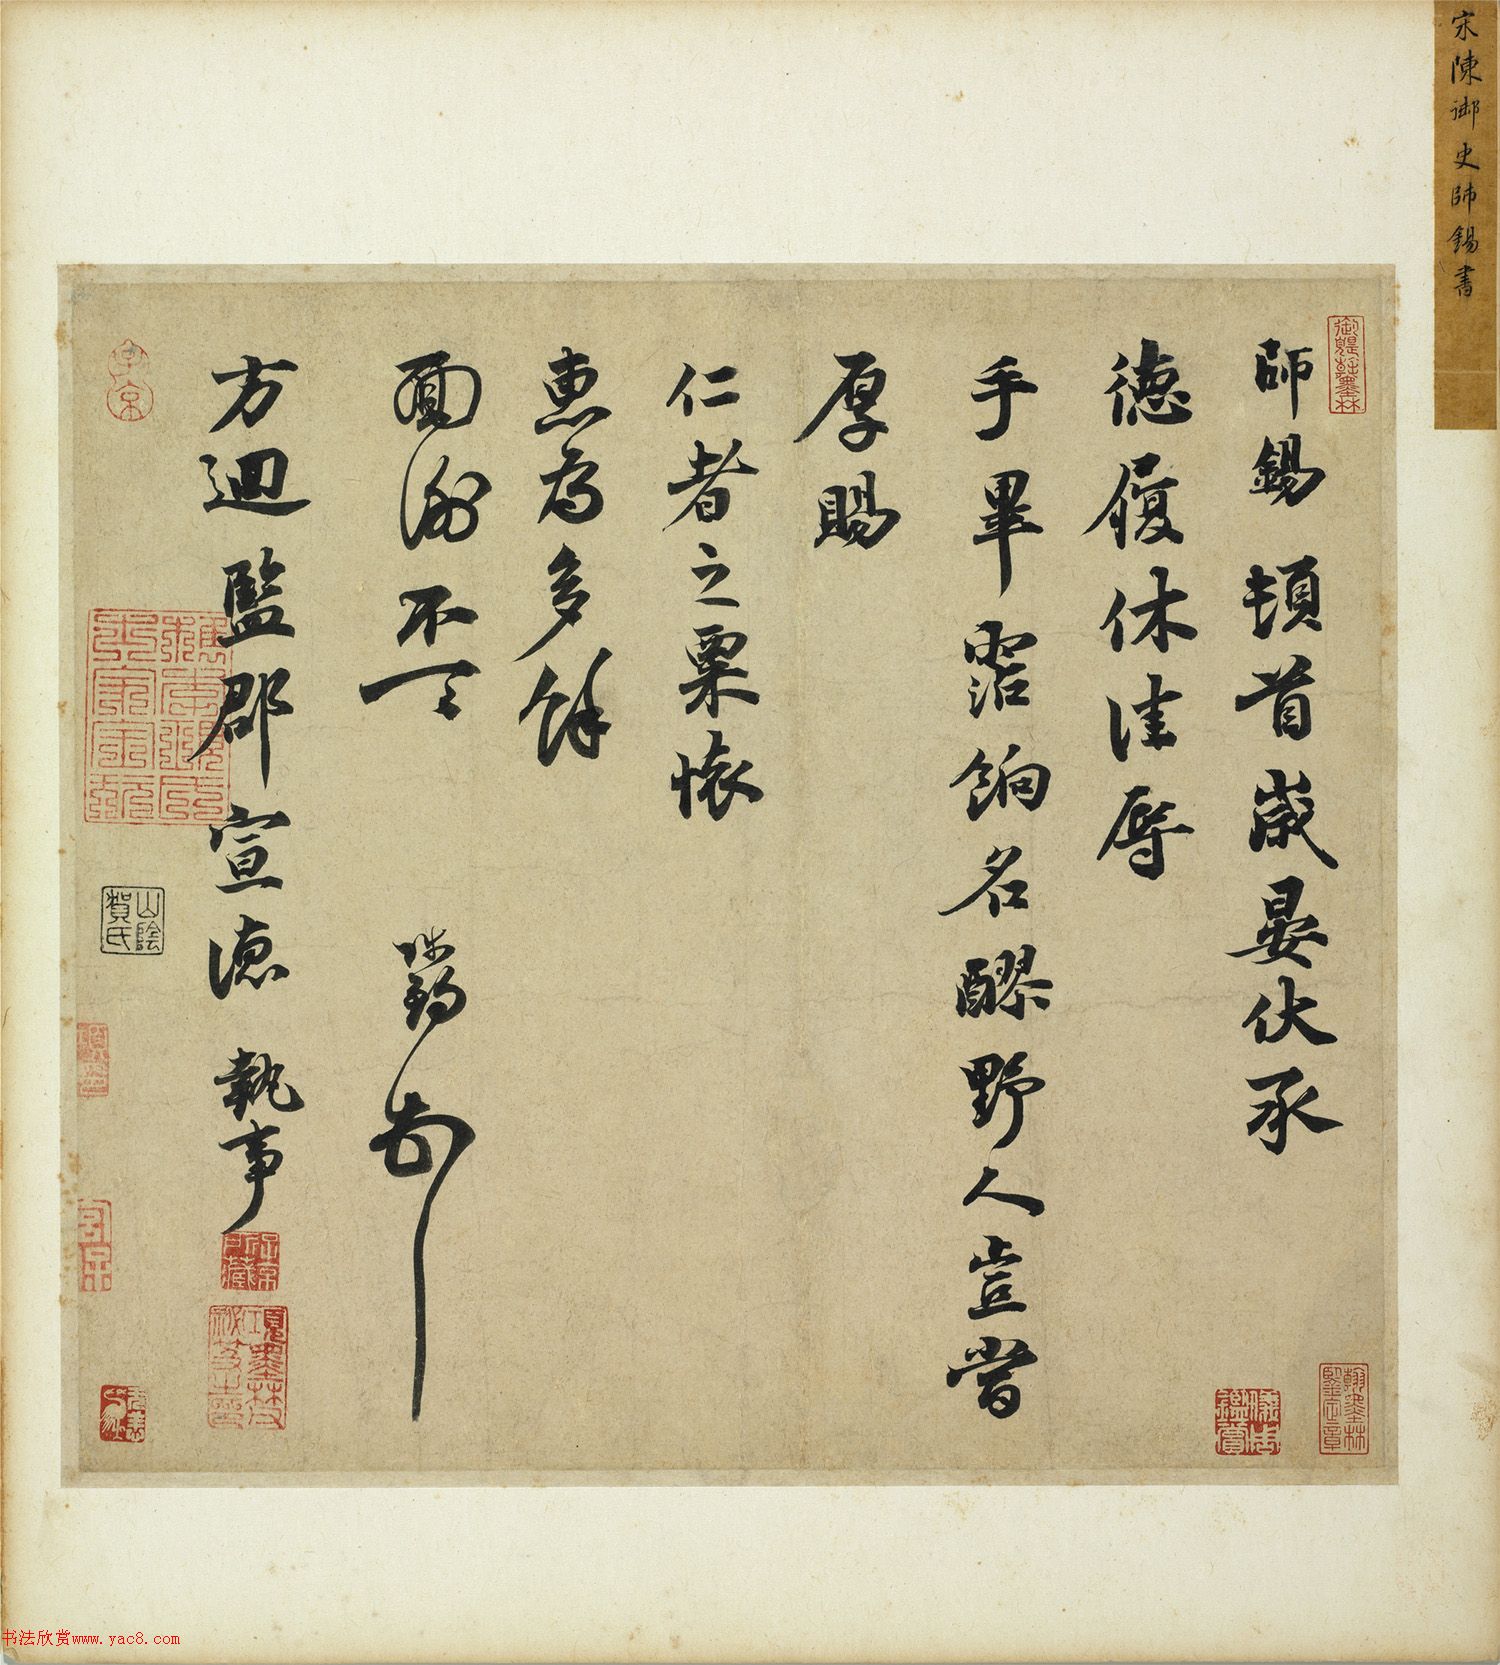 宋陳御史師錫書
師錫頓首歲晏伏承
德履休佳辱
手畢霑餉名醪野人豈嘗
厚賜
仁者之粟懷
惠為多餘
面謝不一一
師錫頓首
方迴監郡宣德 執事
山陰賀氏
書法欣赏www.yac8.com